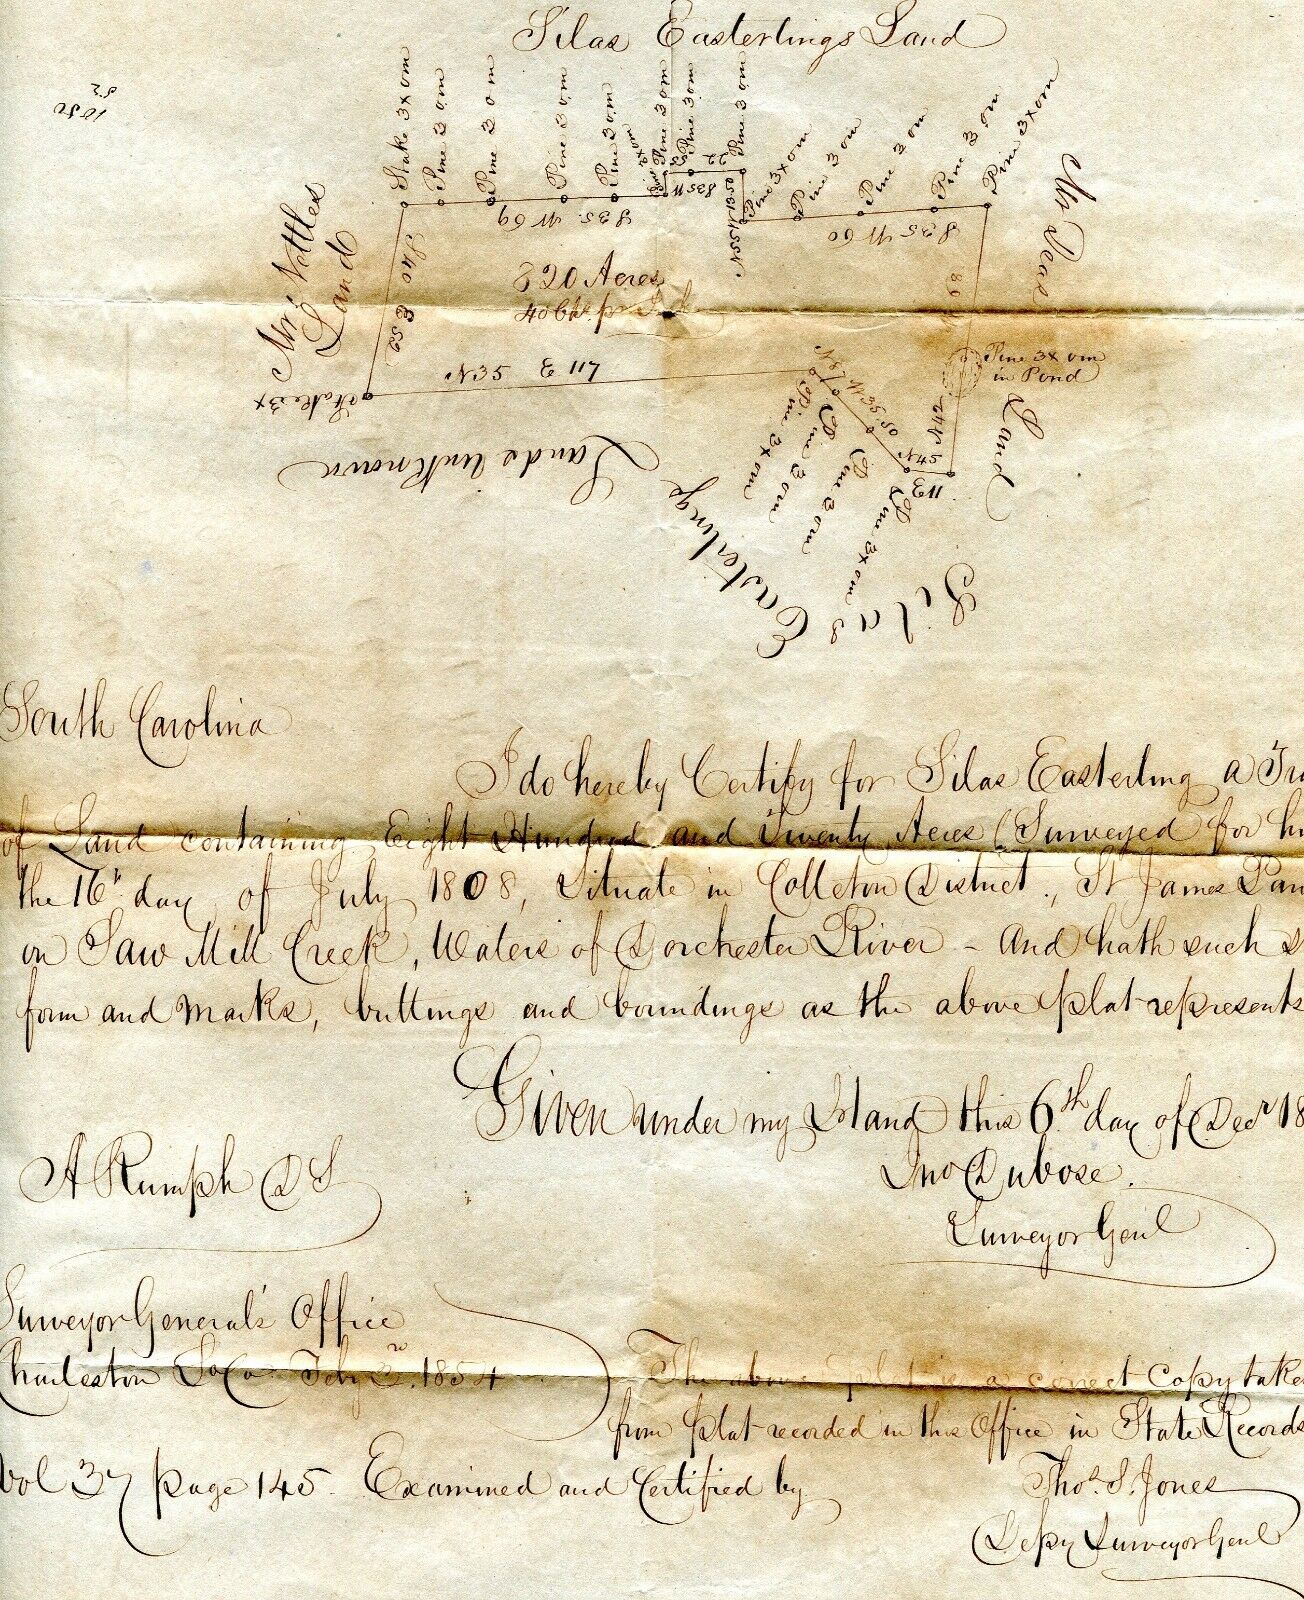 Silas Easterlings Land
1050
52
Stake 3x om
Pine 3 om
Pine 3 om
Pine 3 om
Pine 3 om
Pine 3x om
Pine 3 om
Pine 3 om
Pine 3 om
Pine 3x om
Pine 3 om
Pine 3 om
Pine 3 om
Pine 3x om
S35 W 69
S35 W
22
N55 W 13.50
S35 W 60
Mr Nettles
Land
S40 E 52
820 Acres
40 Chs pr
Mr
Land
Pine 3x om
in Pond
Stake 3x
N35 E 117
N45
E 11
Pine 3x om
Pine 3 om
Pine 3 om
Pine 3x om
Lands unknown
Silas Easterlings
South Carolina
I do hereby Certify for Silas Easterling a Tra
of Land containing Eight Hundred and Twenty Acres (Surveyed for hi
the 16th day of July 1808, Situate in Colleton District., St James Par
on Saw Mill Creek, Waters of Dorchester River – And hath such s
form and marks, buttings and boundings as the above plat represents
Given under my Hand this 6th day of Decr 18
A Rumph D S
Jno Dubose.
Surveyor Genl
Surveyor General's Office
Charleston So Ca Feby 2d. 1854
The above plat is a correct Copy take
from plat recorded in this Office in State Records
Vol 37 page 145. Examined and Certified by
Thos. S. Jones
Depy Surveyor Genl